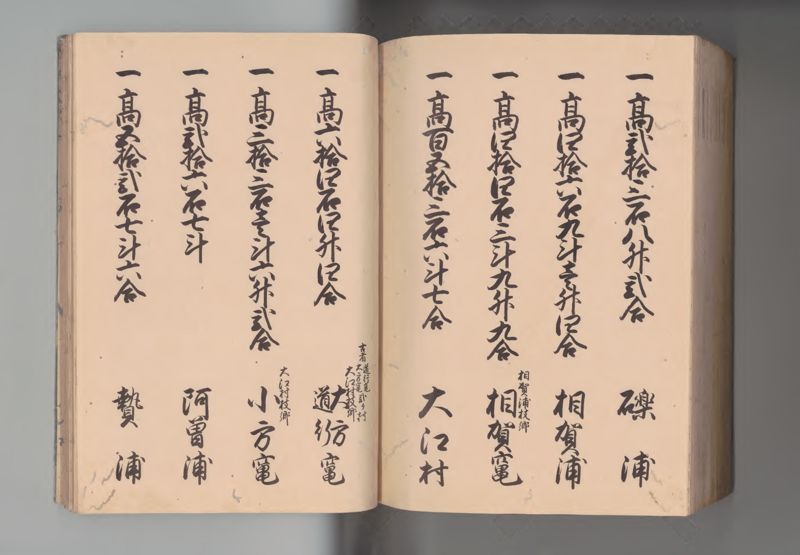 一高弐拾三石八升弐合　礫浦
一高四拾六石九斗壱升四合　相賀浦
一高四拾四石三斗九升九合　相賀竈
相賀浦枝郷
一高百五拾三石六斗七合　大江村
一高六拾四石四升四合　大方竈　道行竈
古者道行竈大方竈弐ヶ村
大江村枝郷
一高三拾三石壱斗六升弐合　小方竈
大江村枝郷
一高弐拾六石七斗　阿曽浦
一高五拾弐石七斗六合　贄浦